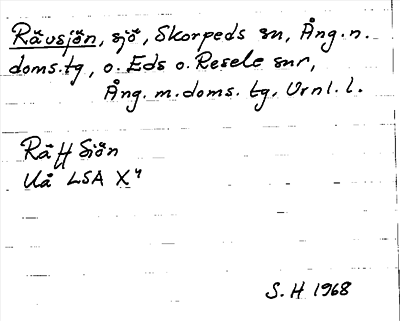 Rävsjön, sjö, Skorpeds sn, Ång. n.
doms. tg, o. Eds o. Resele snr,
Ång. m. doms. tg, Vrnl. l.
Räff Siön
Uå LSA X4
S. H 1968